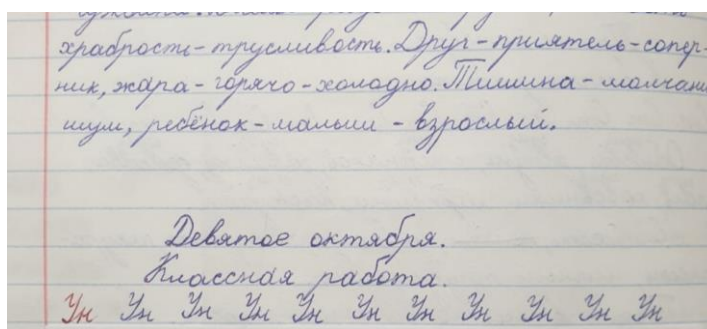 храбрость - трусливость. Друг - приятель - сопер-
ник, жара - горячо - холодно. Тишина - молчани
шум, ребёнок - малыш - взрослый.
Девятое октября.
Классная работа.
Ун Ун Ун Ун Ун Ун Ун Ун Ун Ун Ун